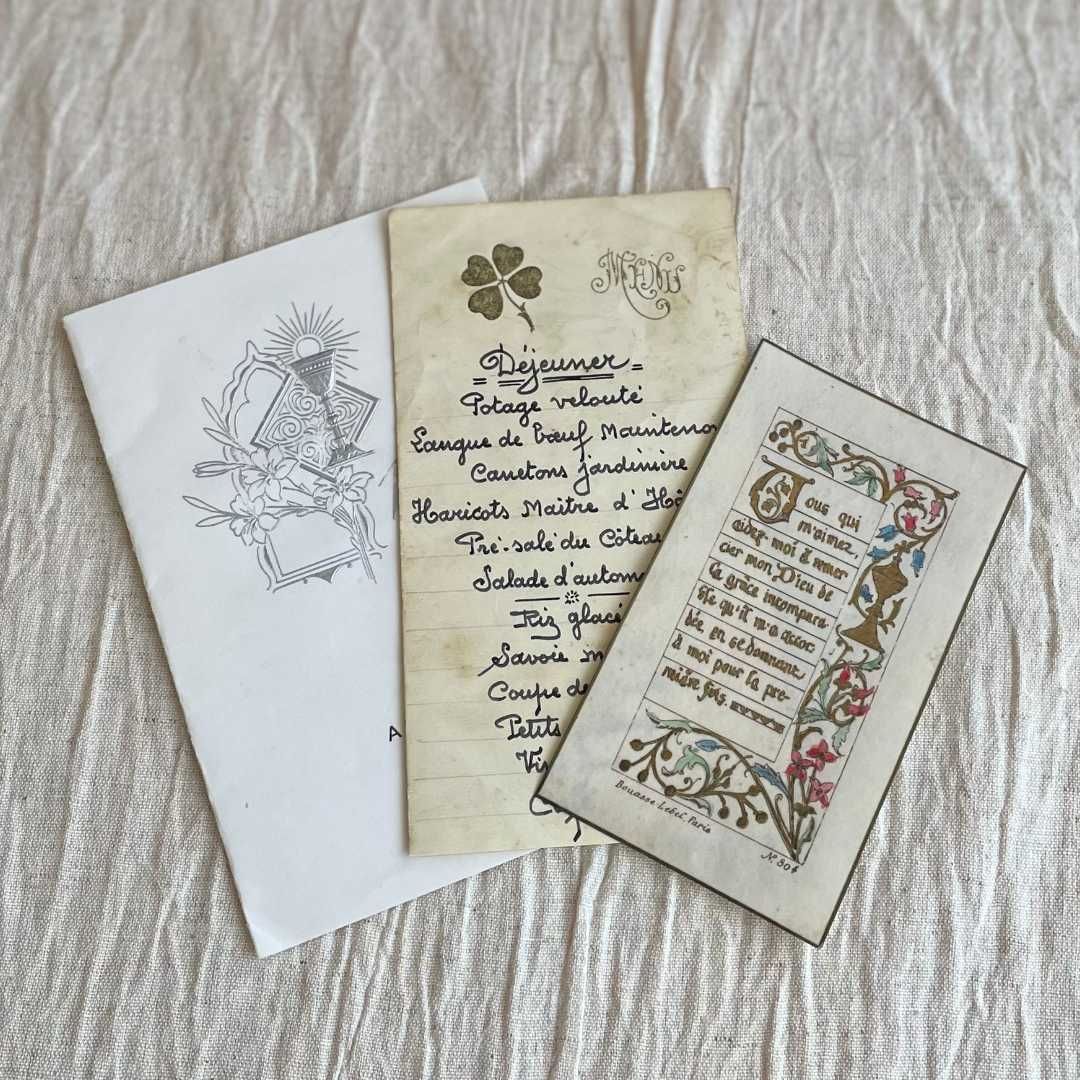 A
MENU
Déjeuner
Potage velouté
Langue de bœuf Maintenon
Canetons jardinière
Haricots Maître d'Hô
Pré-salé du Côteau
Salade d'autom
Riz glacé
Savoie m
Coupe de
Petits
Vi
Tous qui
m'aimez,
aidez-moi à remer
cier mon Dieu de
la grâce incompara
ble qu'il m'a accor
dée, en se donnant
à moi pour la pre-
mière fois.
Bouasse Lebel, Paris
N. 304